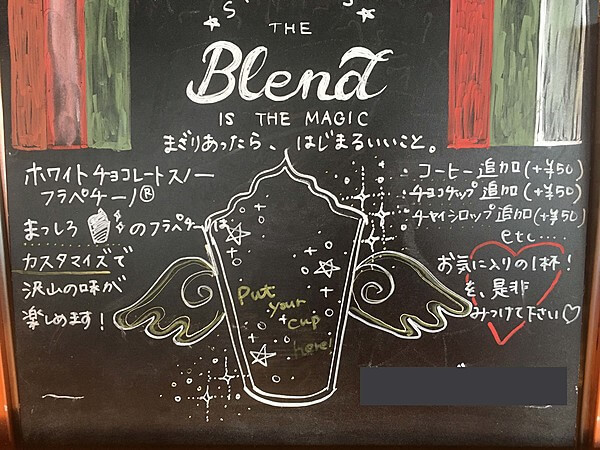 THE
Blend
IS THE MAGIC
まざりあったら、はじまるいいこと。
ホワイトチョコレートスノー
フラペチーノ®
まっしろ のフラペチーノは
カスタマイズで
沢山の味が
楽しめます!
・コーヒー追加(+¥50)
・チョコチップ追加(+¥50)
・チャイシロップ追加(+¥50)
etc....
お気に入りの1杯!
を、是非
みつけて下さい♡
Put
your
cup
here!